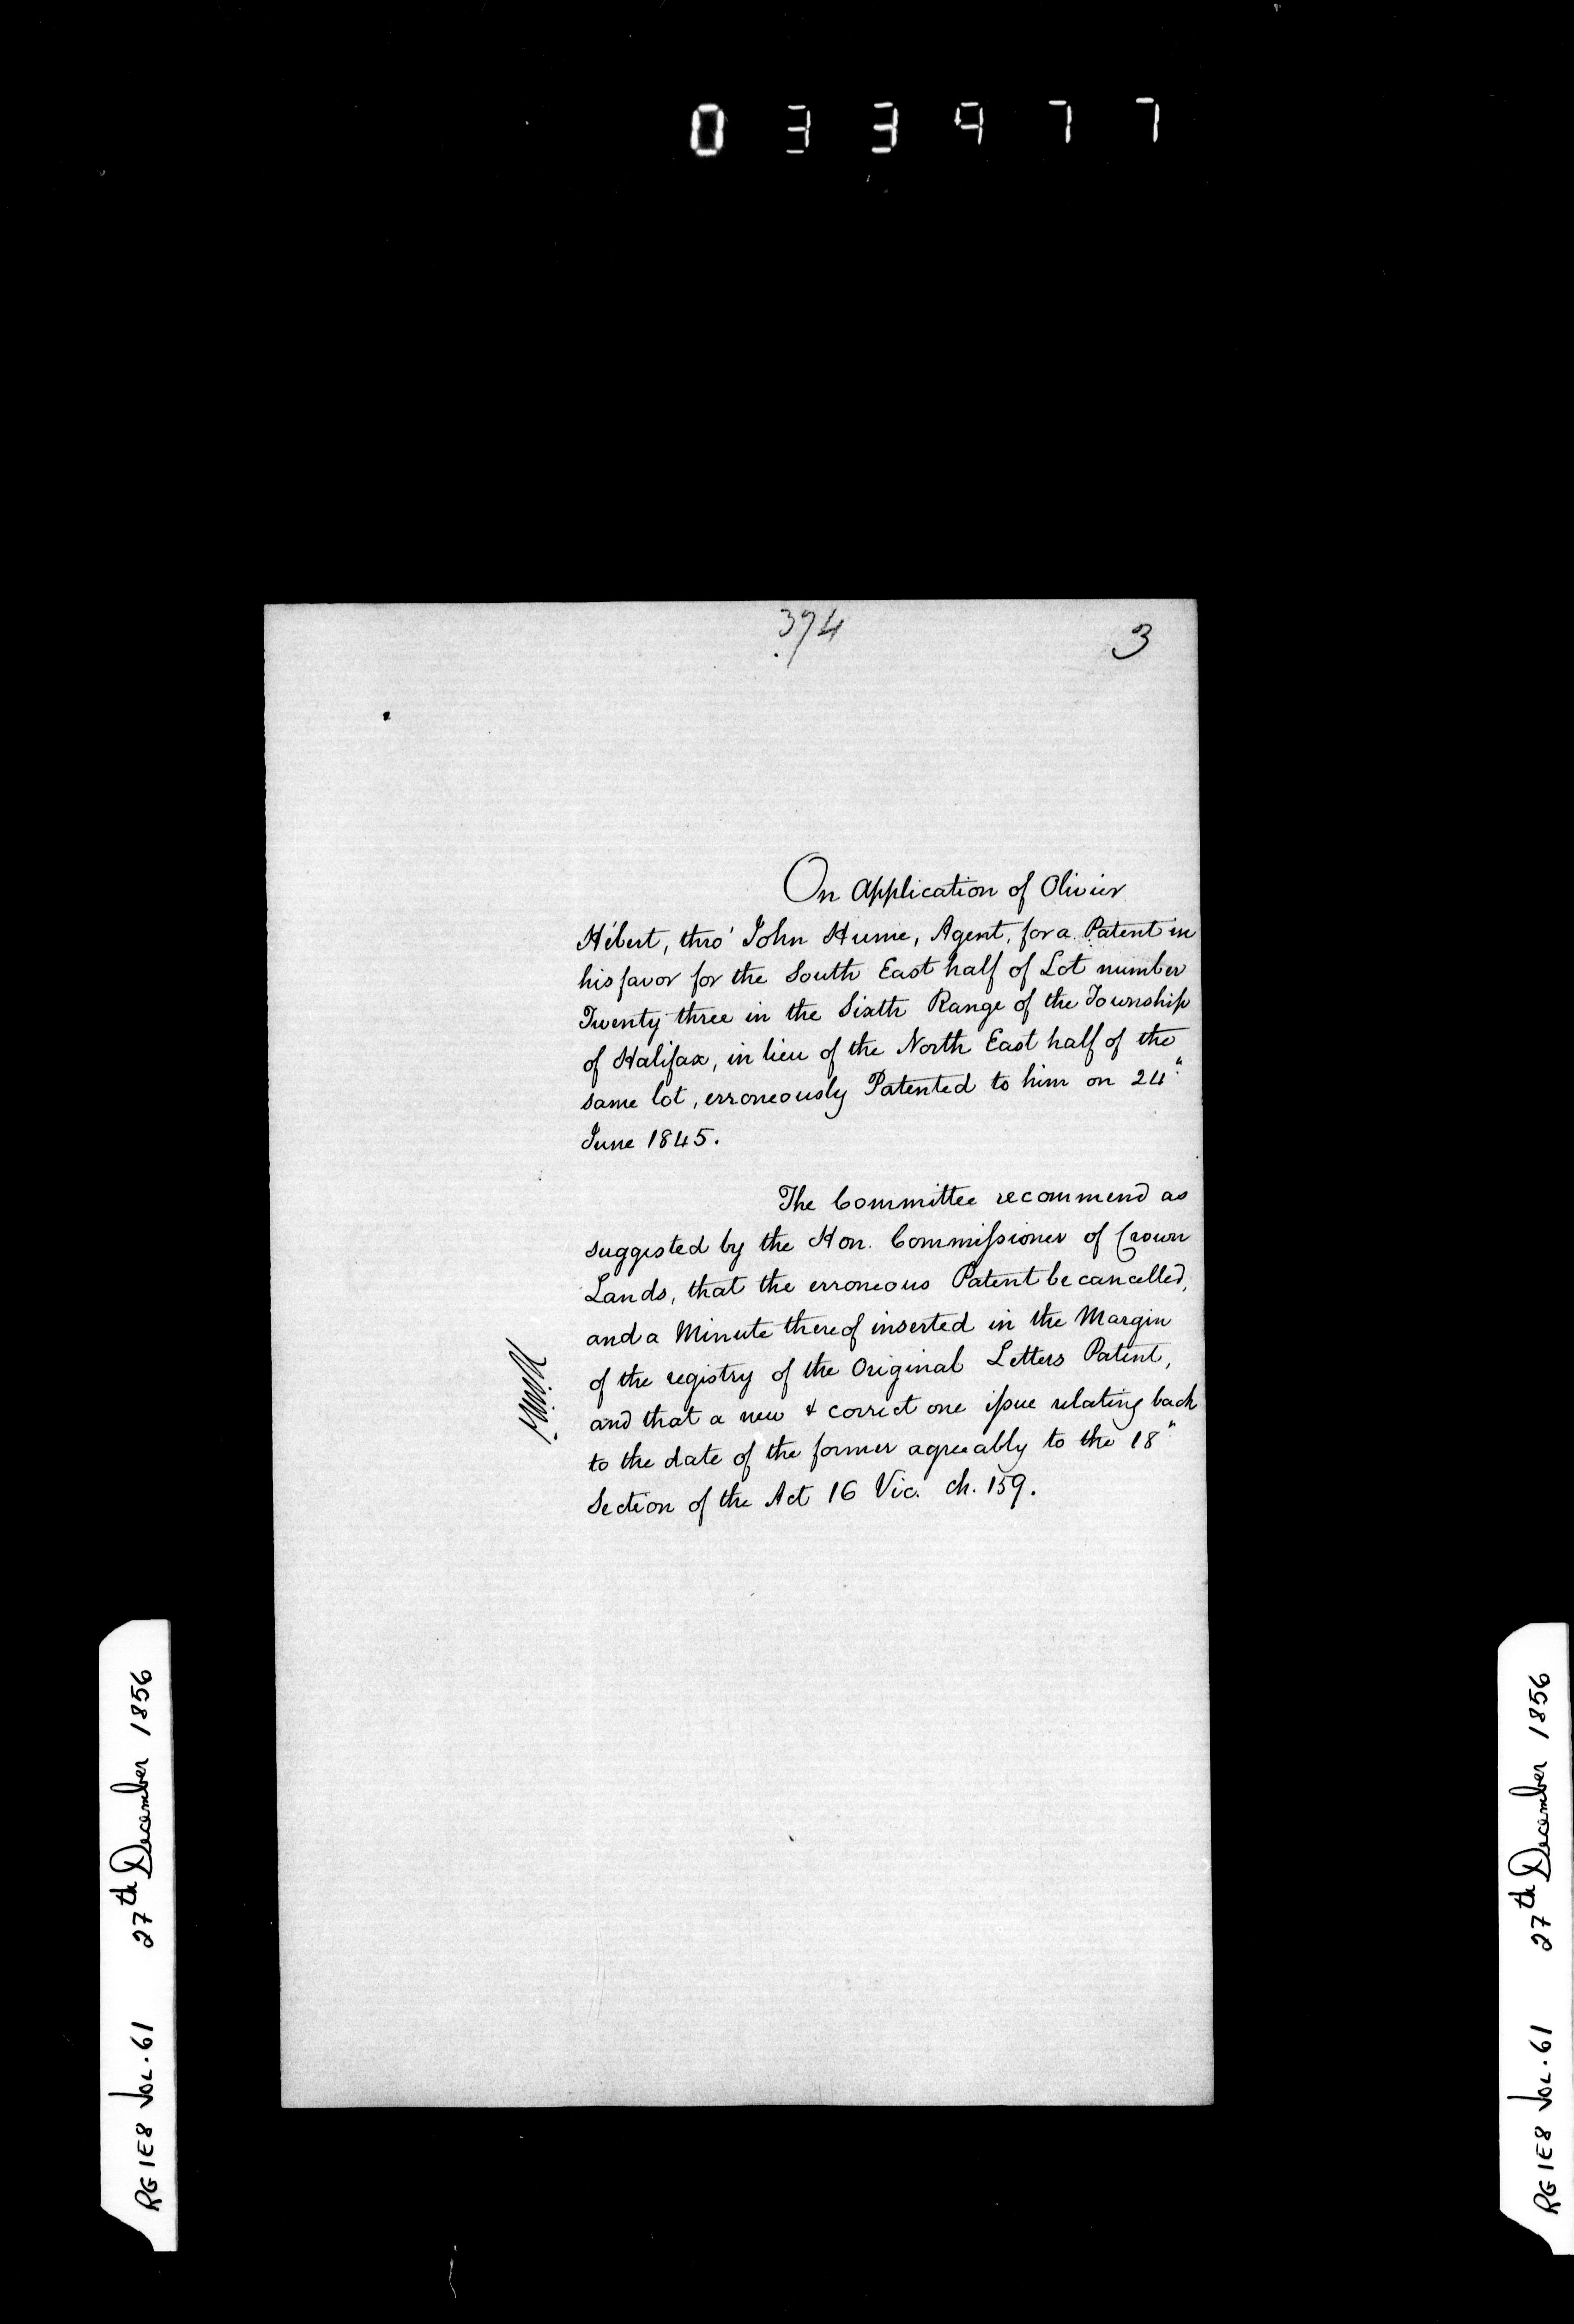 033977
394
3
On Application of Olivier
Hébert, thro' John Hume, Agent, for a Patent in
his favor for the South East half of Lot number
Twenty three in the Sixth Range of the Township
of Halifax, in lieu of the North East half of the
same lot, erroneously Patented to him on 24"
June 1845.
The Committee recommend as
suggested by the Hon. Commissioner of Crown
Lands, that the erroneous Patent be cancelled,
and a Minute thereof inserted in the Margin
of the registry of the Original Letters Patent,
and that a new & correct one issue relating back
to the date of the former agreeably to the 18"
Section of the Act 16 Vic. ch. 159.
RG 1E8 VOL. 61 27th December 1856
RG 1E8 VOL. 61 27th December 1856